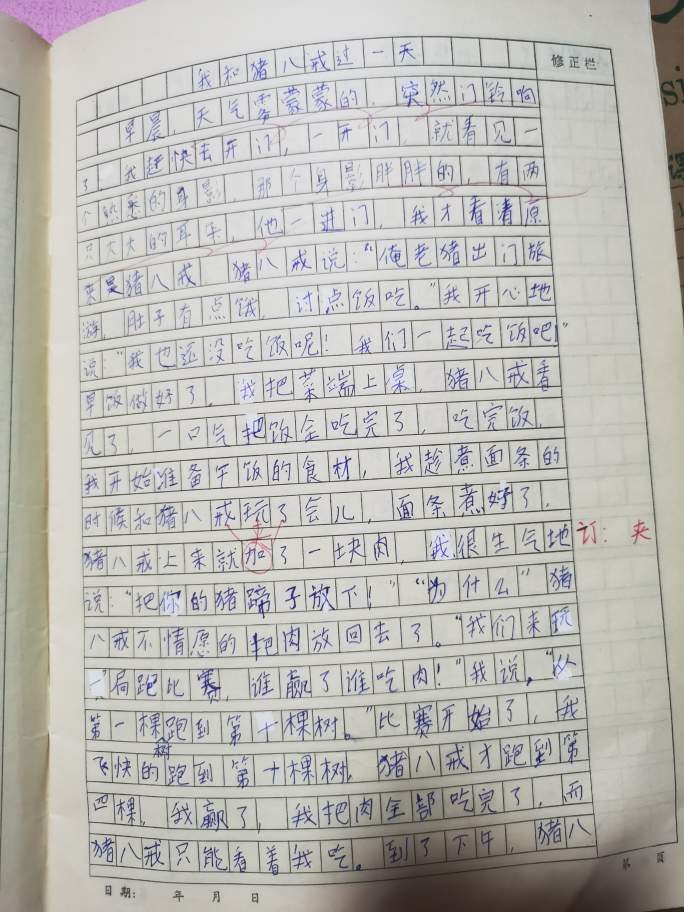 我和猪八戒过一天
修正栏
早晨，天气雾蒙蒙的，突然门铃响
了，我赶快去开门，一开门，就看见一
个熟悉的身影，那个身影胖胖的，有两
只大大的耳朵，他一进门，我才看清原
来是猪八戒，猪八戒说：“俺老猪出门旅
游，肚子有点饿，讨点饭吃。”我开心地
说：“我也还没吃饭呢！我们一起吃饭吧！”
早饭做好了，我把菜端上桌，猪八戒看
见了，一口气把饭全吃完了，吃完饭，
我开始准备午饭的食材，我趁煮面条的
时候和猪八戒玩了会儿，面条煮好了，
夹
猪八戒上来就加了一块肉，我很生气地
订：夹
说：“把你的猪蹄子放下！”“为什么”猪
八戒不情愿的把肉放回去了。“我们来玩
一局跑比赛，谁赢了谁吃肉！”我说。“从
第一棵跑到第十棵树。”比赛开始了，我
树
飞快的跑到第十棵树，猪八戒才跑到第
四棵，我赢了，我把肉全部吃完了，而
猪八戒只能看着我吃。到了下午，猪八
日期： 年 月 日
第 页